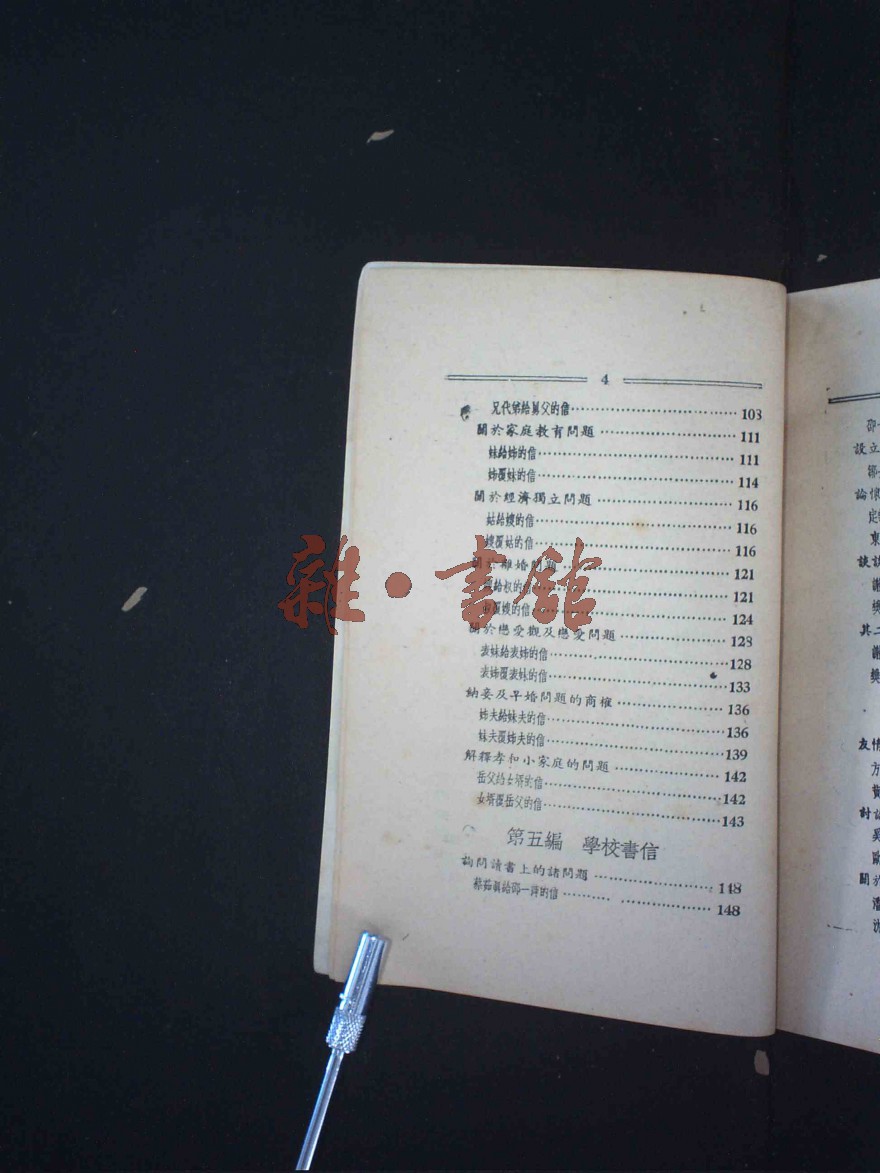 4
兄代弟給舅父的信……………………103
關於家庭教育問題……………………111
妹給姊的信……………………111
姊覆妹的信……………………114
關於經濟獨立問題……………………116
姑給嫂的信……………………116
嫂覆姑的信……………………116
關於離婚問題……………………121
嫂給叔的信……………………121
叔覆嫂的信……………………124
關於戀愛觀及戀愛問題……………………128
表妹給表姊的信……………………128
表姊覆表妹的信……………………133
納妾及早婚問題的商榷……………………136
姊夫給妹夫的信……………………136
妹夫覆姊夫的信……………………139
解釋孝和小家庭的問題……………………142
岳父給女壻的信……………………142
女壻覆岳父的信……………………143
第五編 學校書信
詢問讀書上的諸問題……………………148
給邵一萍的信……………………148
雜·書館
設立
論懷
東
談訪
謝
樊
其二
謝
樊
友情
方
黃
討論
吳
歐
關於
潘
沈